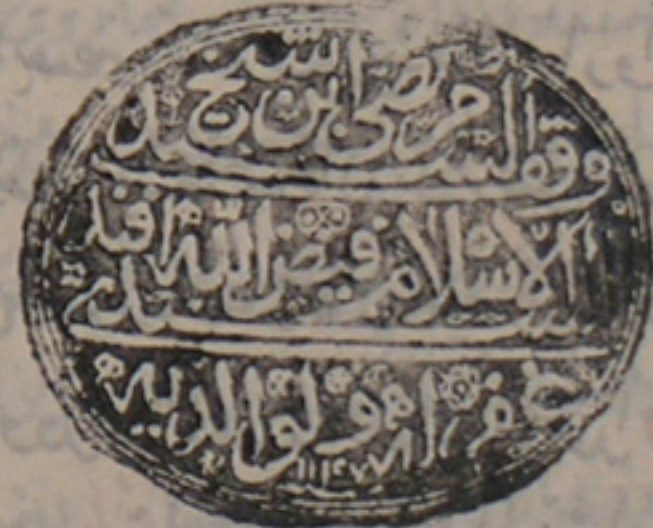 وقف السيد مرتضى ابن شيخ
الاسلام فيض الله افندي
غفر ولوالديه